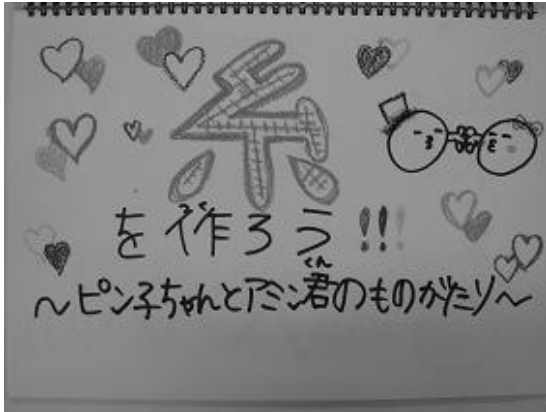 糸
を作ろう!!!
くん
〜ピン子ちゃんとアミン君のものがたり〜